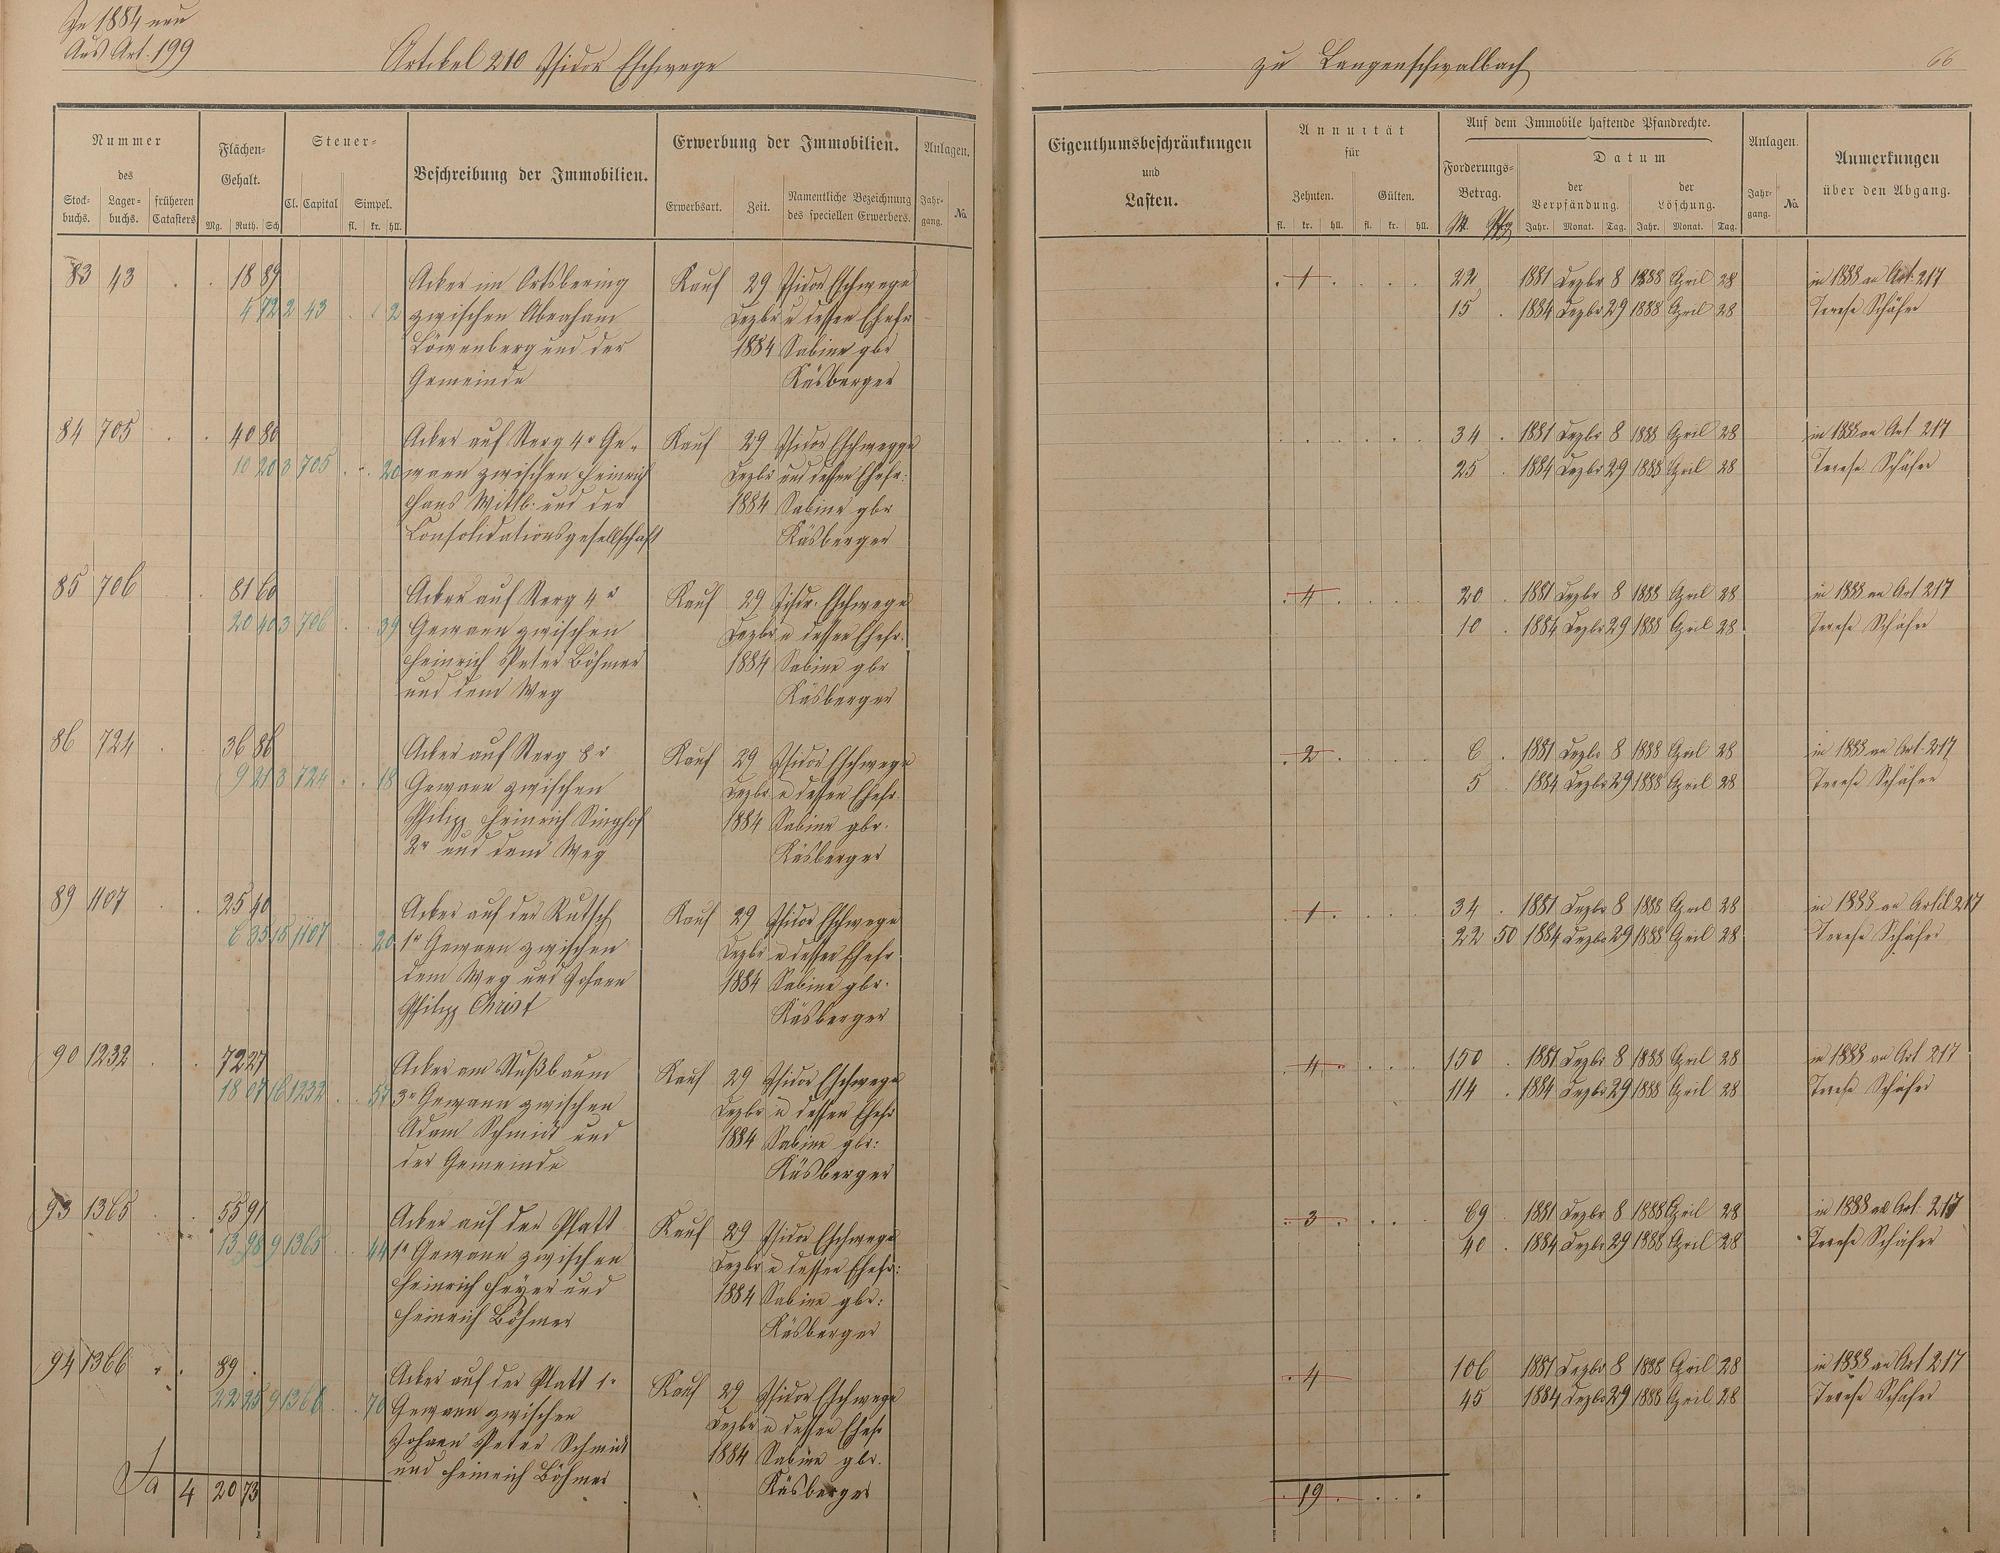 In 1884 neu
Aus Art. 199
Artikel 210 Isidor Eschwege
zu Langenschwalbach
66
Nummer
des
Stock-
buchs.
Lager-
buchs.
früheren
Catasters
Flächen-
Gehalt.
Mg. Ruth. Sch
Steuer-
Cl. Capital
Simpel.
fl. kr. hll.
Beschreibung der Immobilien.
Erwerbung der Immobilien.
Erwerbsart.
Zeit.
Namentliche Bezeichnung
des speciellen Erwerbers.
Anlagen.
Jahr-
gang.
No.
Eigenthumsbeschränkungen
und
Lasten.
Annuität
für
Zehnten.
Gülten.
fl. kr. hll. fl. kr. hll.
Auf dem Immobile haftende Pfandrechte.
Forderungs-
Betrag.
Datum
der
Verpfändung.
der
Löschung.
Jahr. Monat. Tag. Jahr. Monat. Tag.
Anlagen.
Jahr-
gang.
No.
Anmerkungen
über den Abgang.
83 43 . . 18 89 Acker im Ortsbering Kauf 29 Isidor Eschwege . 1 . . . . 22 1881 Dezbr 8 1888 April 28 in 1888 an Art. 217
4 72 2 43 . . 2 zwischen Abraham Dezbr u dessen Ehefr 15 . 1884 Dezbr 29 1888 April 28 Terese Schäfer
Löwenberg und der 1884 Sabine gbr
Gemeinde Käsberger
84 705 . . 40 80 Acker auf Berg 4r Ge- Kauf 29 Isidor Eschwege . . . . . . 34 . 1881 Dezbr 8 1888 April 28 in 1888 an Art 217
10 20 3 705 . . 20 wann zwischen Heinrich Dezbr und dessen Ehefr. 25 . 1884 Dezbr 29 1888 April 28 Terese Schäfer
Hans Wittb. und der 1884 Sabine gbr
Consolidationsgesellschaft Käsberger
85 706 . 81 60 Acker auf Berg 4r Kauf 29 Isidr. Eschwege . 4 . . . . 20 . 1881 Dezbr 8 1888 April 28 in 1888 an Art 217
20 40 3 706 . . 39 Gewann zwischen Dezbr u dessen Ehefr. 10 . 1884 Dezbr 29 1888 April 28 Terese Schäfer
Heinrich Peter Böhmer 1884 Sabine gbr
und dem Weg Käsberger
86 724 . 36 86 Acker auf Berg 8r Kauf 29 Isidor Eschwege . 2 . . . . 6 . 1881 Dezbr 8 1888 April 28 in 1888 an Art. 217
9 21 3 724 . . 18 Gewann zwischen Dezbr u dessen Ehefr. 5 . 1884 Dezbr 29 1888 April 28 Terese Schäfer
Philipp Heinrich Singhof 1884 Sabine gbr.
2r und dem Weg Käsberger
89 1107 . . 25 40 Acker auf der Rutsch Kauf 29 Isidor Eschwege . 1 . . . . 34 . 1881 Dezbr 8 1888 April 28 in 1888 an Artikl 217
6 35 15 1107 . . 20 1r Gewann zwischen Dezbr u dessen Ehefr 22 50 1884 Dezbr 29 1888 April 28 Terese Schäfer
dem Weg und Johann 1884 Sabine gbr.
Philipp Christ Käsberger
90 1232 . . 72 27 Acker am Nußbaum Kauf 29 Isidor Eschwege . 4 . . . . 150 . 1881 Dezbr 8 1888 April 28 in 1888 an Art 217
18 07 16 1232 . . 57 3r Gewann zwischen Dezbr u dessen Ehefr 114 . 1884 Dezbr 29 1888 April 28 Terese Schäfer
Adam Schmidt und 1884 Sabine gbr:
der Gemeinde Käsberger
93 1365 . . 55 91 Acker auf der Platt Kauf 29 Isidor Eschwege . 3 . . . . 69 . 1881 Dezbr 8 1888 April 28 in 1888 an Art. 217
13 98 9 1365 . . 44 1r Gewann zwischen Dezbr u dessen Ehefr: 40 . 1884 Dezbr 29 1888 April 28 Terese Schäfer
Heinrich Heyer und 1884 Sabine gbr:
Heinrich Böhmer Käsberger
94 1366 . . 89 . Acker auf der Platt 1r Kauf 29 Isidor Eschwege . 4 . . . . 106 1881 Dezbr 8 1888 April 28 in 1888 an Art 217
22 25 9 1366 . . 70 Gewann zwischen Dezbr u dessen Ehefr 45 . 1884 Dezbr 29 1888 April 28 Terese Schäfer
Johann Peter Schmidt 1884 Sabine gbr.
und Heinrich Böhmer Käsberger
Sa 4 20 73 . 19 . . . .